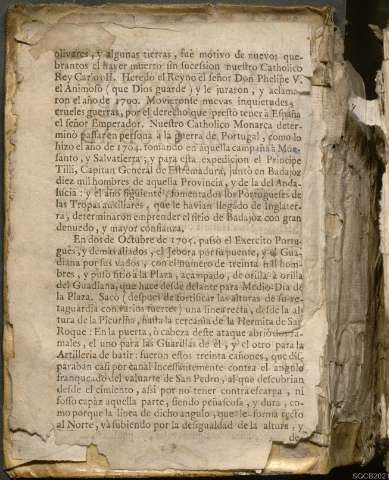 olivares, y algunas tierras, fuè motivo de nuevos que-
brantos el haver muerto sin sucession nuestro Catholico
Rey Carlos II. Heredò el Reyno el señor Don Phelipe V.
el Animoso (que Dios guarde) y le juraron, y aclama-
ron el año de 1700. Movieronse nuevas inquietudes,
crueles guerras, por el derecho que prestò tener à España
el señor Emperador. Nuestro Catholico Monarca deter-
minò passar en persona à la guerra de Portugal, como lo
hizo el año de 1704. tomando en aquella campaña à Mon-
santo, y Salvatierra; y para esta expedicion el Principe
Tilli, Capitan General de Estremadura, juntò en Badajoz
diez mil hombres de aquella Provincia, y de la del Anda-
lucia: y el año siguiente, fomentados los Portugueses de
las Tropas auxiliares, que le havian llegado de Inglater-
ra, determinaron emprender el sitio de Badajoz con gran
denuedo, y mayor confianza.
En dos de Octubre de 1705. passò el Exercito Portu-
guès, y demàs aliados, el Jebora por su puente, y el Gua-
diana por sus vados, con el numero de treinta mil hom-
bres, y puso sitio à la Plaza, acampado, de orilla à orilla
del Guadiana, que hace desde delante para Medio-Dia de
la Plaza. Sacò (despues de fortificar las alturas de su re-
taguardia con varios fuertes) una linea recta, desde la al-
tura de la Picuriña, hasta la cercania de la Hermita de San
Roque: En la puerta, ò cabeza deste ataque abriò dos ra-
males, el uno para las Guardias de èl, y el otro para la
Artilleria de batir: fueron estos treinta cañones, que dis-
paraban casi por canal incessantemente contra el angulo
franqueado del valuarte de San Pedro, al que descubrian
desde el cimiento, assi por no tener contraescarpa, ni
fosso capàz aquella parte, siendo peñascosa, y dura, co-
mo porque la linea de dicho angulo, que le forma recto
al Norte, và subiendo por la desigualdad de la altura, y
de
SGCB2021